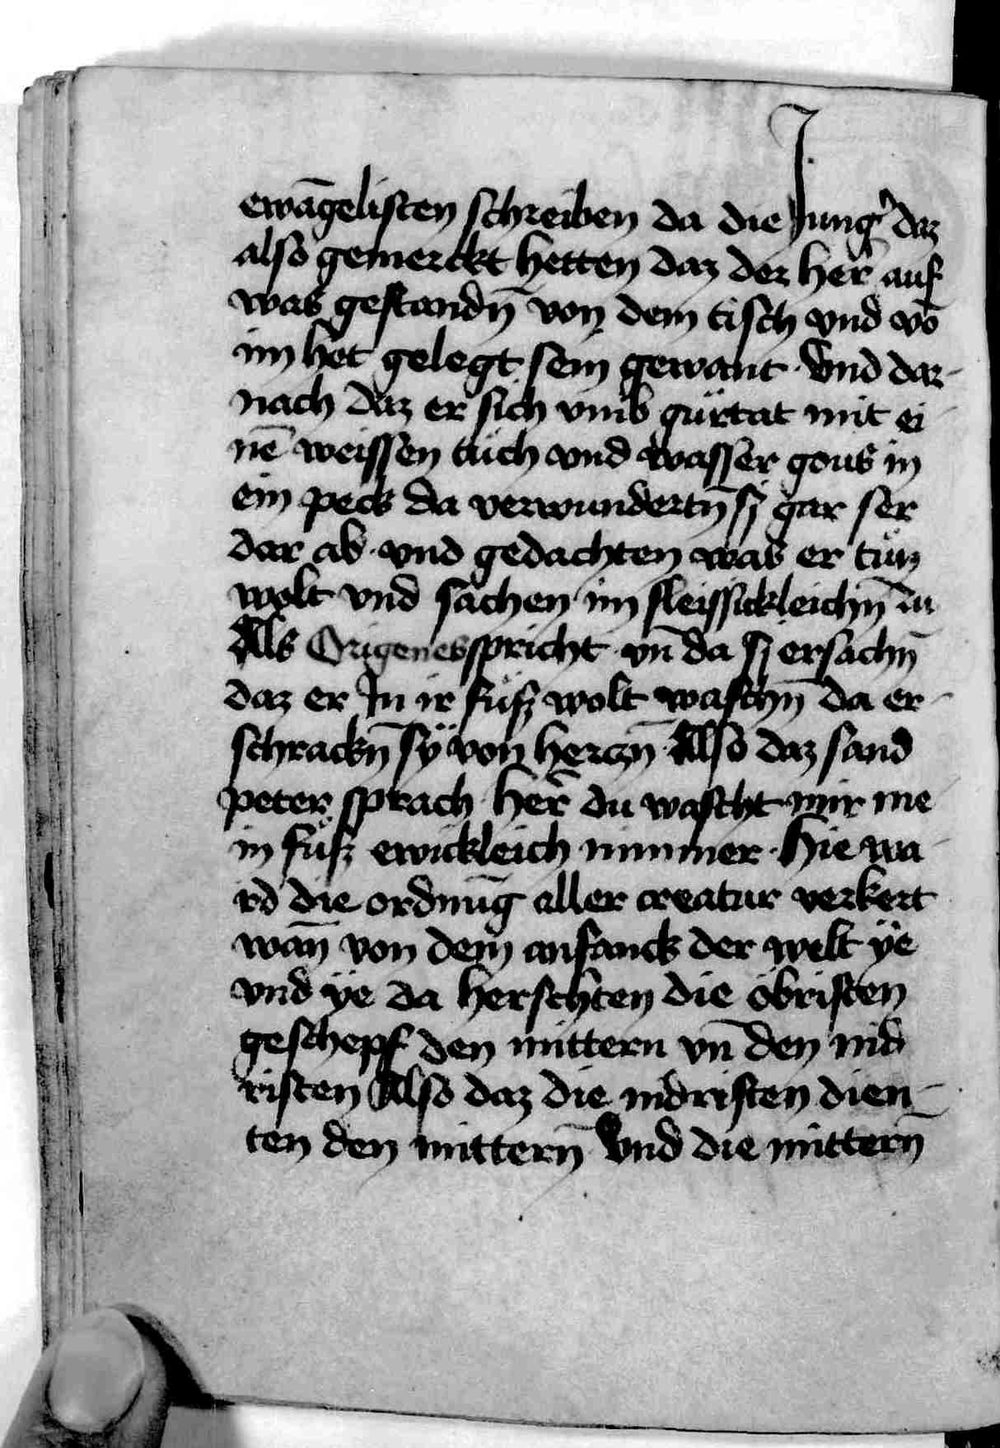 ewāgelisten schreiben da die Jung᷑ daz
also gemerckt hetten daz der her᷑ auf
was gestandn̄ von dem tisch vnd vō
im het gelegt sein gewant · Vnd dar-
nach daz er sich vmb gürtat mit ei-
nē weissen tuch vnd wasser gous in
ein peck da verwundertn̄ sj gar ser
dar ab · vnd gedachten was er tun
wolt vnd sachen im fleissickleichn̄ zu
Als Origenes spricht · vn̄ da sj ersachn̄
daz er In ir füsz wolt waschn̄ da er-
schrackn̄ sÿ von herczn̄ · Also daz sand
peter sprach · her᷑ du wascht mir me-
in füsz ewickleich nimmer · Hie wa-
rd die ordnūg aller creatur verkert
wan̄ von dem anfanck der welt ÿe
vnd ÿe da herschten die öbristen
geschepf den mittern vn̄ den nid
risten Also daz die nidristen dien-
ten den mittern̄ Vnd die mittern̄